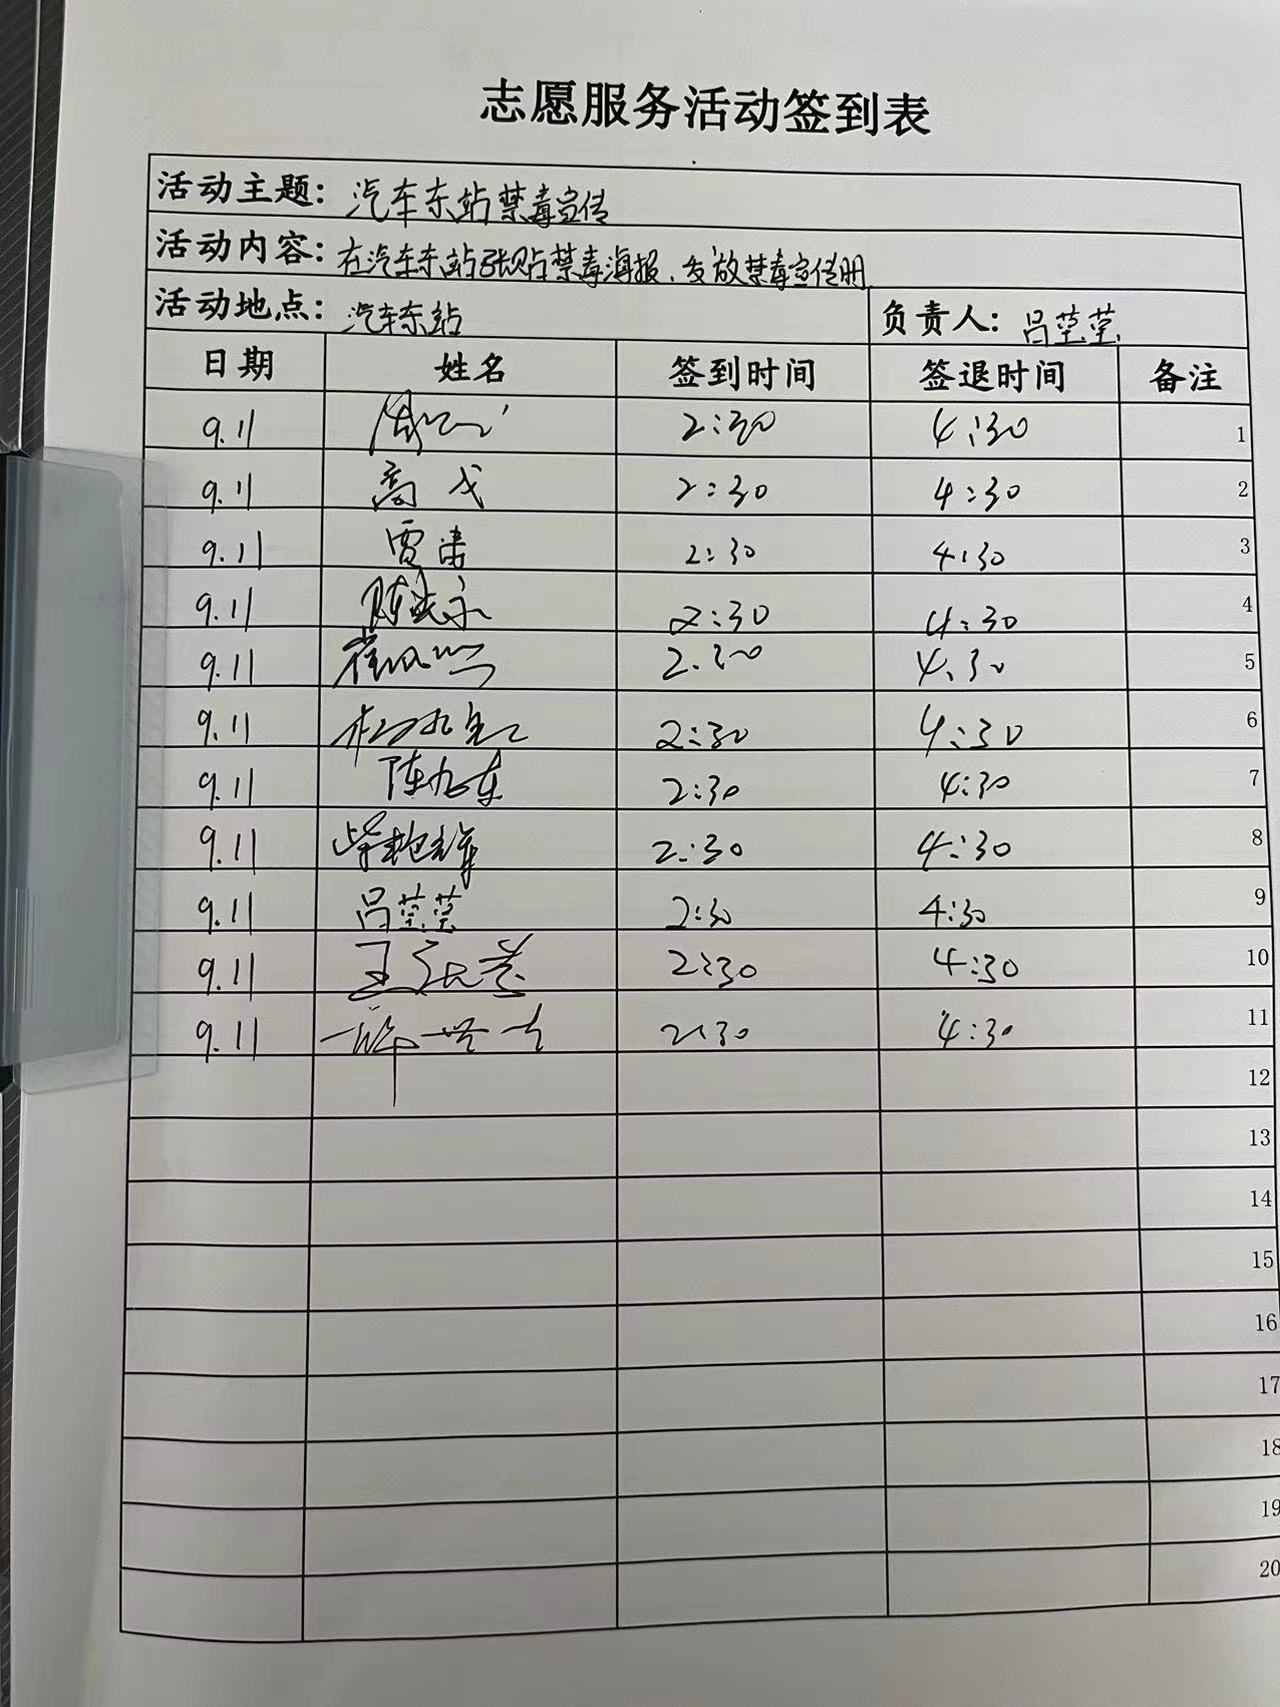 志愿服务活动签到表
活动主题: 汽车东站禁毒宣传
活动内容: 在汽车东站张贴禁毒海报、发放禁毒宣传册
活动地点: 汽车东站 负责人: 吕莹莹
日期 姓名 签到时间 签退时间 备注
9.11 2:30 4:30 1
9.11 高戈 2:30 4:30 2
9.11 雷 2:30 4:30 3
9.11 陈 永 2:30 4:30 4
9.11 崔 2:30 4:30 5
9.11 2:30 4:30 6
9.11 陈旭东 2:30 4:30 7
9.11 柴艳辉 2:30 4:30 8
9.11 吕莹莹 2:30 4:30 9
9.11 王 2:30 4:30 10
9.11 2:30 4:30 11
12
13
14
15
16
17
18
19
20